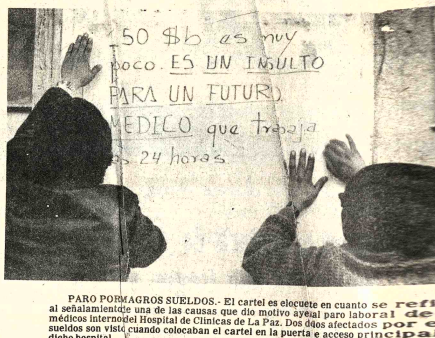 50 $b es muy
poco. ES UN INSULTO
PARA UN FUTURO
MEDICO que trabaja
24 horas
PARO POR MAGROS SUELDOS.- El cartel es elocuete en cuanto se refi
al señalamiento de una de las causas que dio motivo ayer al paro laboral de
médicos internos del Hospital de Clínicas de La Paz. Dos de los afectados por e
sueldos son visto cuando colocaban el cartel en la puerta e acceso principal
dicho hospital